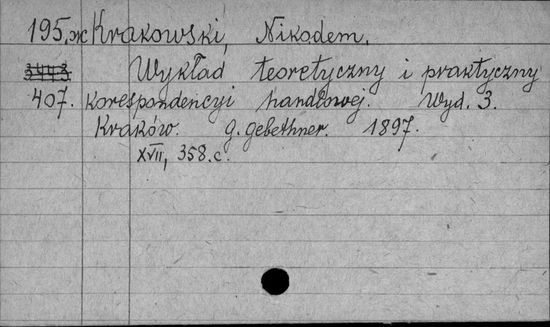 195.ж Krakowski, Nikodem.
Wykład teoretyczny i praktyczny
407. korespondencyi handlowej. Wyd. 3.
Kraków. G. Gebethner. 1897.
XVII, 358.c.